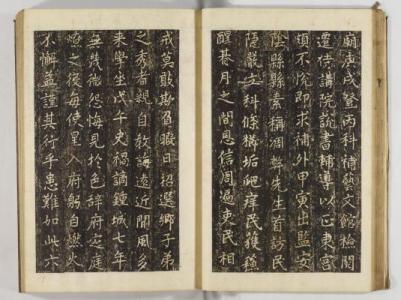 廟庚戌登丙科補藝文館檢閱
選侍講院說書輔導以正東宮
頗不悅即求補外甲寅出監安
陰縣縣素稱凋弊先生首訪民
隱設立科條櫛垢爬痒民獲穌
醒朞月之間恩信周遍吏民相
戒莫敢欺暇日招選鄉子弟
之秀者親自教誨遠近聞風多
來學坐戊午史禍謫鍾城七年
無幾微怨悔見於色辭府定庭
燎之後每使星入府躬自燃火
不懈益謹其行乎患難如此六